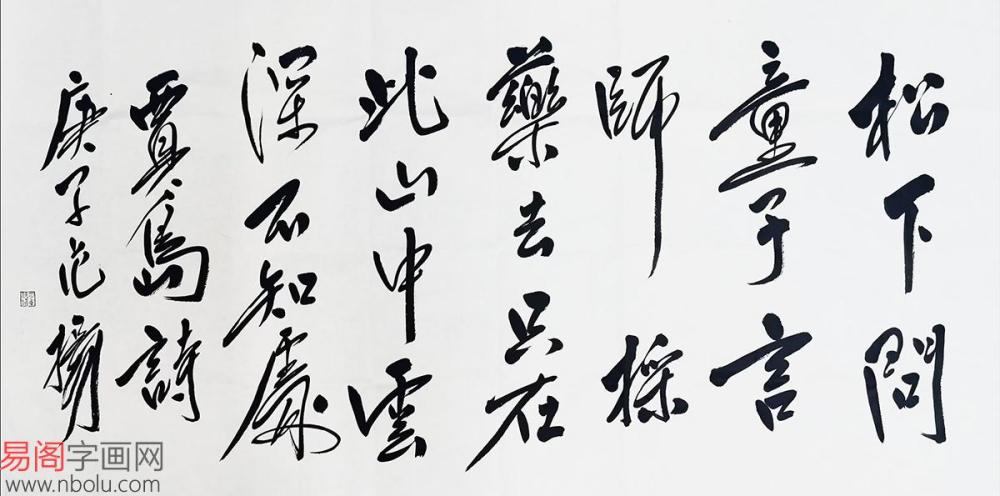 松下問
童子言
師採
藥去只在
此山中雲
深不知處
賈島詩
庚子范
易阁字画网
www.nbolu.com